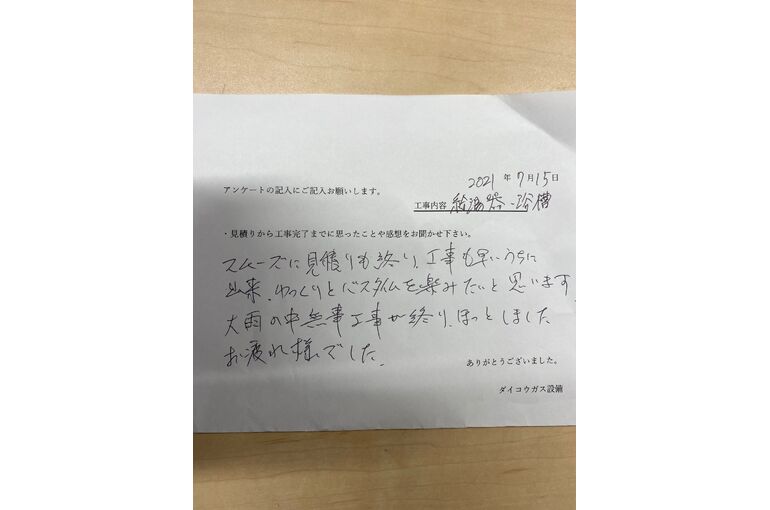 2021 年 7月15日
アンケートの記入にご記入お願いします。
工事内容 給湯器、浴槽
・見積りから工事完了までに思ったことや感想をお聞かせ下さい。
スムーズに見積りも終り、工事も早いうちに
出来、ゆっくりとバスタイムを楽みたいと思います
大雨の中無事工事が終り、ほっとしました
お疲れ様でした。
ありがとうございました。
ダイコウガス設備